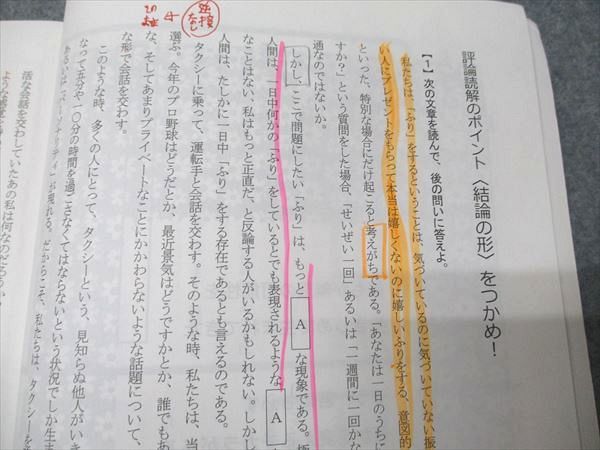 評論読解のポイント〈結論の形〉をつかめ！
【1】次の文章を読んで、後の問いに答えよ。
私たちは、「ふり」をするということは、気づいているのに気づいていない振
い人にプレゼントをもらって本当は嬉しくないのに嬉しいふりをする、意図的
といった、特別な場合にだけ起こると考えがちである。「あなたは一日のうちに
すか？」という質問をした場合、「せいぜい一回」あるいは「一週間に一回かな
通なのではないか。
しかし、ここで問題にしたい「ふり」は、もっと A な現象である。極
人間は、一日中何かの「ふり」をしているとでも表現されるような A
なことはない、私はもっと正直だ、と反論する人がいるかもしれない。しかし
人間は、たしかに一日中「ふり」をする存在であるとも言えるのである。
タクシーに乗って、運転手と会話を交わす。そのような時、私たちは、当
選ぶ。今年のプロ野球はどうだとか、最近景気はどうですかとか、誰でもあ
な、そしてあまりプライベートなことにかかわらないような話題について、
な形で会話を交わす。
このような時、多くの人にとって、タクシーという、見知らぬ他人がいき
なって五分や一〇分の時間を過ごさなくてはならないという状況でしか生ま
が現れる。だからこそ、私たちは、タクシーを
活な会話を交わしていたあの私は何なのだろうか